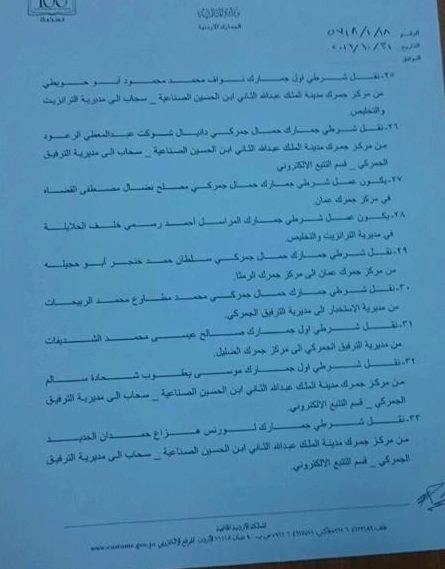 الجمارك الأردنية
الرقم ٥٧١٨/١/٨٨
التاريخ ٢٠١٦/١٠/٣١
الموافق
٢٥-نقل شرطي اول جمارك نواف محمد محمود أبو حويطي
من مركز جمرك مدينة الملك عبدالله الثاني ابن الحسين الصناعية _ سحاب الى مديرية الترانزيت
والتخليص.
٢٦-نقل شرطي جمارك حمال جمركي دانيال شوكت عبدالمعطي الزعود
من مركز جمرك مدينة الملك عبدالله الثاني ابن الحسين الصناعية _ سحاب الى مديرية الترفيق
الجمركي _ قسم التتبع الالكتروني
٢٧-يكون عمل شرطي جمارك حمال جمركي مصلح نضال مصطفى القضاه
في مركز جمرك عمان.
٢٨-يكون عمل شرطي جمارك المراسل أحمد رسمي خلف الخلايلة
في مديرية الترانزيت والتخليص.
٢٩-نقل شرطي جمارك حمال جمركي سلطان حمد خنجر أبو حجيله
من مركز جمرك عمان الى مركز جمرك الرمثا.
٣٠-نقل شرطي جمارك حمال جمركي محمد مطاوع محمد الربيحات
من مديرية الاستخبار الى مديرية الترفيق الجمركي.
٣١-نقل شرطي اول جمارك صالح عيسى محمد الشديفات
من مديرية الترفيق الجمركي الى مركز جمرك الضليل.
٣٢-نقل شرطي اول جمارك موسى يعقوب شحادة سالم
من مركز جمرك مدينة الملك عبدالله الثاني ابن الحسين الصناعية _ سحاب الى مديرية الترفيق
الجمركي _ قسم التتبع الالكتروني.
٣٣-نقل شرطي جمارك لورنس هزاع حمدان الحديد
من مركز جمرك مدينة الملك عبدالله الثاني ابن الحسين الصناعية _ سحاب الى مديرية الترفيق
الجمركي _ قسم التتبع الالكتروني.
المملكة الأردنية الهاشمية
عمان ١١١١٨ الأردن الموقع الإلكتروني www.customs.gov.jo